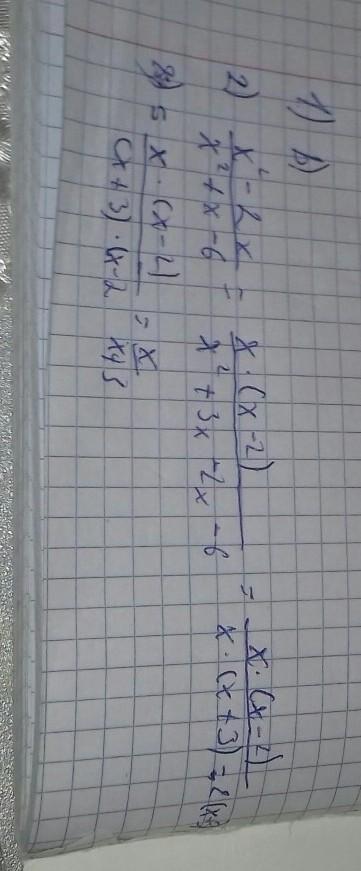 1) b)
2) x² - 2x / x² + x - 6 = x · (x - 2) / x² + 3x - 2x - 6 = x · (x - 2) / x · (x + 3) - 2(x+3)
= x · (x - 2) / (x + 3) · (x - 2 = x / x + 3